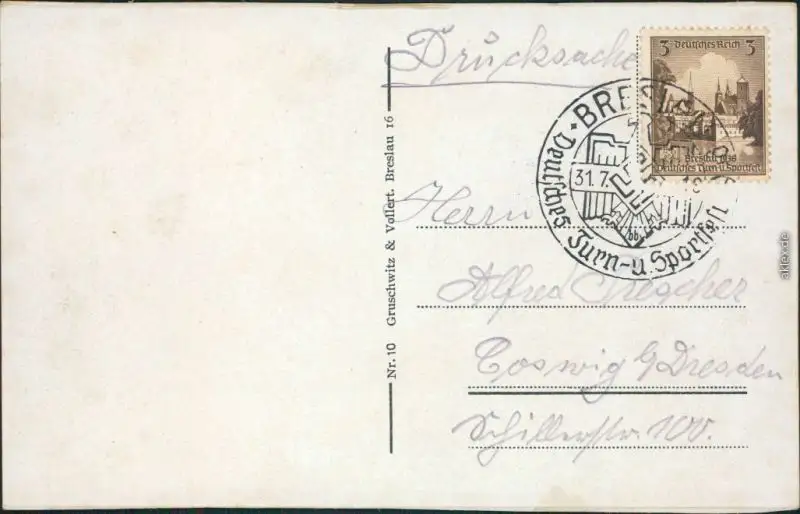 Drucksache
3 Deutsches Reich 3
Breslau 1938
Deutsches Turn-u.Sportfest
BRESLAU
31.7.
Deutsches Turn-u. Sportfest
Nr. 10 Gruschwitz & Vollert. Breslau 16
Herrn
Alfred
Coswig b/Dresden
Schillerstr. 100.
akpool.de